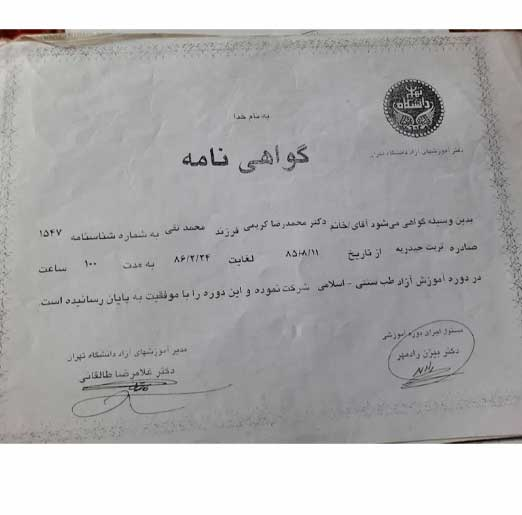 تهران
دانشگاه
به نام خدا
دفتر آموزشهای آزاد دانشگاه تهران
گواهی نامه
بدین وسیله گواهی می‌شود آقای/خانم دکتر محمدرضا کریمی فرزند محمد تقی به شماره شناسنامه ۱۵۴۷
صادره تربت حیدریه از تاریخ ۸۵/۸/۱۱ لغایت ۸۶/۲/۲۴ به مدت ۱۰۰ ساعت
در دوره آموزش آزاد طب سنتی - اسلامی شرکت نموده و این دوره را با موفقیت به پایان رسانیده است.
مسئول اجرای دوره آموزشی
دکتر بیژن رادمهر
مدیر آموزشهای آزاد دانشگاه تهران
دکتر غلامرضا طالقانی